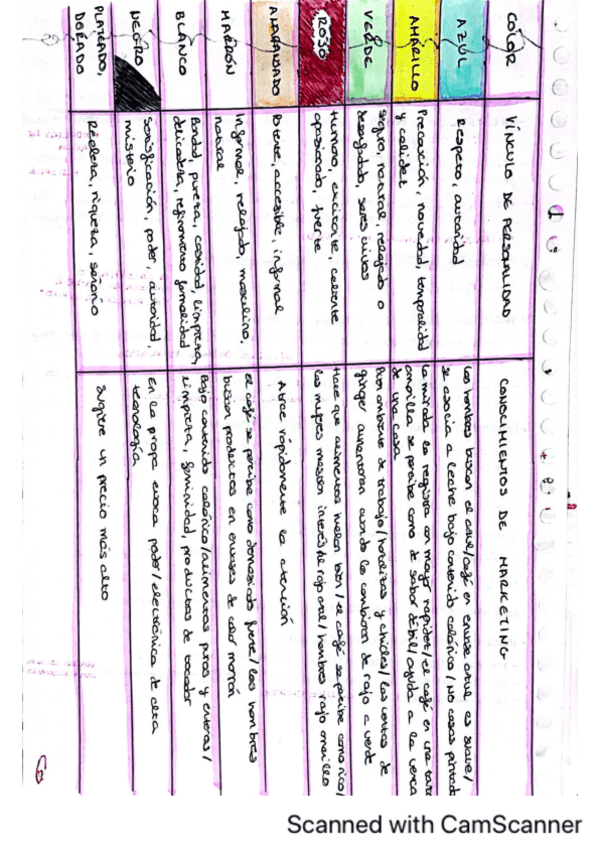 COLOR
VÍNCULO DE PERSONALIDAD
CONOCIMIENTOS DE MARKETING
AZUL
Respeto, autoridad
Los hombres buscan el azul/café en envase azul es suave/
se asocia a leche bajo contenido calórico/NO casas pintad
AMARILLO
Precaución, novedad, temporalidad
y calidez
La mirada lo registra con mayor rapidez/el café en una taza
amarilla se percibe como de sabor débil/ayuda a la venta
de una casa
VERDE
Seguro, natural, relajado o
desenfadado, seres vivos
Buen ambiente de trabajo/hortalizas y chicles/las ventas de
ginger aumentaron cuando lo cambiaron de rojo a verde
ROJO
Humano, excitante, caliente
apasionado, fuerte
Hace que alimentos huelan bien/el café se percibe como rico/
las mujeres muestran interés del rojo azul/hombres rojo amarillo
ANARANJADO
Potente, accesible, informal
Atrae rápidamente la atención
MARRÓN
Informal, relajado, masculino,
natural
El café se percibe como demasiado fuerte/los hombres
buscan productos en envases de color marrón
BLANCO
Bondad, pureza, castidad, limpieza,
delicadeza, refinamiento formalidad
Bajo contenido calórico/alimentos puros y enteros/
limpieza, feminidad, productos de tocador
NEGRO
Sofisticación, poder, autoridad,
misterio
En la propa evoca poder/electrónica de alta
tecnología
PLATEADO,
DORADO
Realeza, riqueza, señorío
Sugiere un precio más alto
Scanned with CamScanner